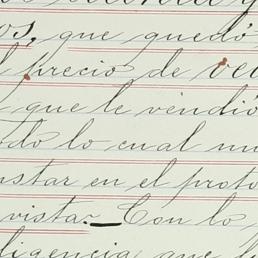 os, que quedó
precio de
que le vendió
do lo cual
nstar en el proto
vista.—Con lo
ligencia que